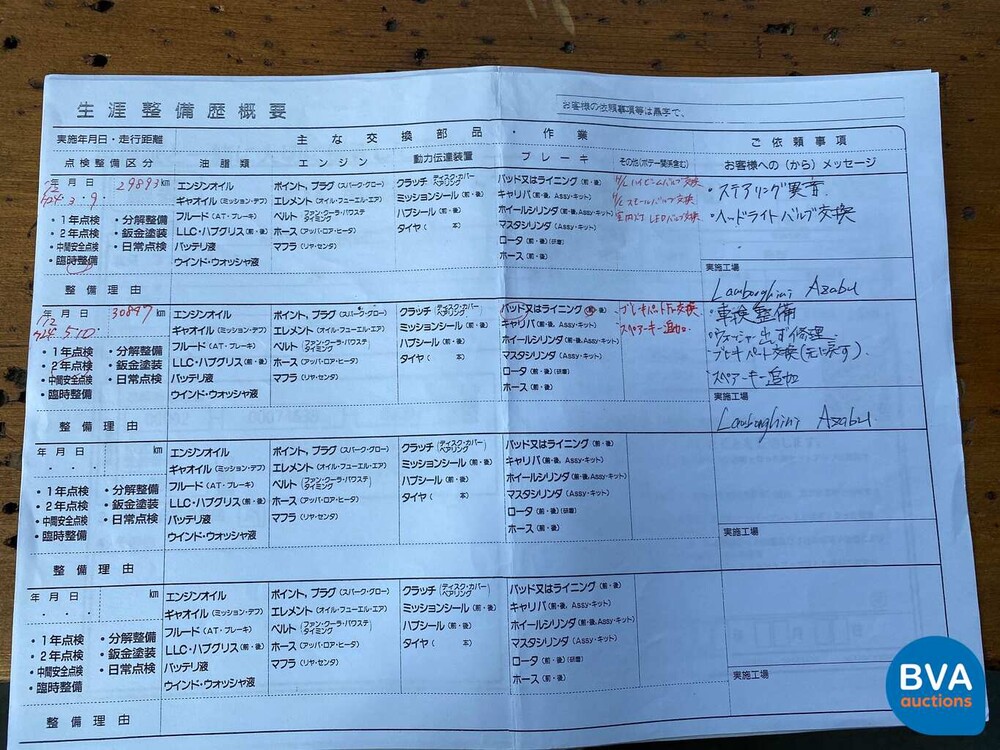 生涯整備歴概要
お客様の依頼事項等は黒字で、
実施年月日・走行距離 主な交換部品・作業 ご依頼事項
点検整備区分 油脂類 エンジン 動力伝達装置 ブレーキ その他(ボデー関係含む) お客様への(から)メッセージ
年月日 29893km エンジンオイル ポイント、プラグ(スパーク・グロー) クラッチ(ディスク・カバー ベアリング) パッド又はライニング(前・後)
3.9. ギャオイル(ミッション・デフ) エレメント(オイル・フューエル・エア) ミッションシール(前・後) キャリパ(前・後、Assy・キット)
・1年点検 ・分解整備 フルード(AT・ブレーキ) ベルト(ファン・クーラ・パワステ タイミング) ハブシール(前・後) ホイールシリンダ(前・後、Assy・キット) 室内灯LEDバルブ交換
・2年点検 ・鈑金塗装 LLC・ハブグリス(前・後) ホース(アッパ・ロア・ヒータ) タイヤ(本) マスタシリンダ(Assy・キット)
・中間安全点検 ・日常点検 バッテリ液 マフラ(リヤ・センタ) ロータ(前・後)(研磨)
・臨時整備 ウインド・ウォッシャ液 ホース(前・後)
・ステアリング異音
・ヘッドライトバルブ交換
整備理由
実施工場
Lamborghini Azabu
年月日 30847km エンジンオイル ポイント、プラグ(スパーク・グロー) クラッチ(ディスク・カバー ベアリング) パッド又はライニング(前・後)
5.10. ギャオイル(ミッション・デフ) エレメント(オイル・フューエル・エア) ミッションシール(前・後) キャリパ(前・後、Assy・キット) スペアーキー追加
・1年点検 ・分解整備 フルード(AT・ブレーキ) ベルト(ファン・クーラ・パワステ タイミング) ハブシール(前・後) ホイールシリンダ(前・後、Assy・キット)
・2年点検 ・鈑金塗装 LLC・ハブグリス(前・後) ホース(アッパ・ロア・ヒータ) タイヤ(本) マスタシリンダ(Assy・キット)
・中間安全点検 ・日常点検 バッテリ液 マフラ(リヤ・センタ) ロータ(前・後)(研磨)
・臨時整備 ウインド・ウォッシャ液 ホース(前・後)
・車検整備
出ず修理
交換(元に戻す)
・スペアーキー追加
整備理由
実施工場
Lamborghini Azabu
年月日 km エンジンオイル ポイント、プラグ(スパーク・グロー) クラッチ(ディスク・カバー ベアリング) パッド又はライニング(前・後)
ギャオイル(ミッション・デフ) エレメント(オイル・フューエル・エア) ミッションシール(前・後) キャリパ(前・後、Assy・キット)
・1年点検 ・分解整備 フルード(AT・ブレーキ) ベルト(ファン・クーラ・パワステ タイミング) ハブシール(前・後) ホイールシリンダ(前・後、Assy・キット)
・2年点検 ・鈑金塗装 LLC・ハブグリス(前・後) ホース(アッパ・ロア・ヒータ) タイヤ(本) マスタシリンダ(Assy・キット)
・中間安全点検 ・日常点検 バッテリ液 マフラ(リヤ・センタ) ロータ(前・後)(研磨)
・臨時整備 ウインド・ウォッシャ液 ホース(前・後)
実施工場
整備理由
年月日 km エンジンオイル ポイント、プラグ(スパーク・グロー) クラッチ(ディスク・カバー ベアリング) パッド又はライニング(前・後)
ギャオイル(ミッション・デフ) エレメント(オイル・フューエル・エア) ミッションシール(前・後) キャリパ(前・後、Assy・キット)
・1年点検 ・分解整備 フルード(AT・ブレーキ) ベルト(ファン・クーラ・パワステ タイミング) ハブシール(前・後) ホイールシリンダ(前・後、Assy・キット)
・2年点検 ・鈑金塗装 LLC・ハブグリス(前・後) ホース(アッパ・ロア・ヒータ) タイヤ(本) マスタシリンダ(Assy・キット)
・中間安全点検 ・日常点検 バッテリ液 マフラ(リヤ・センタ) ロータ(前・後)(研磨)
・臨時整備 ウインド・ウォッシャ液 ホース(前・後)
実施工場
整備理由
BVA
auctions